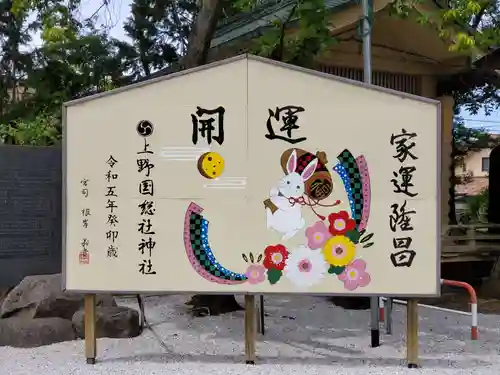 開運
家運隆昌
上野国総社神社
令和五年癸卯歳
宮司 根岸